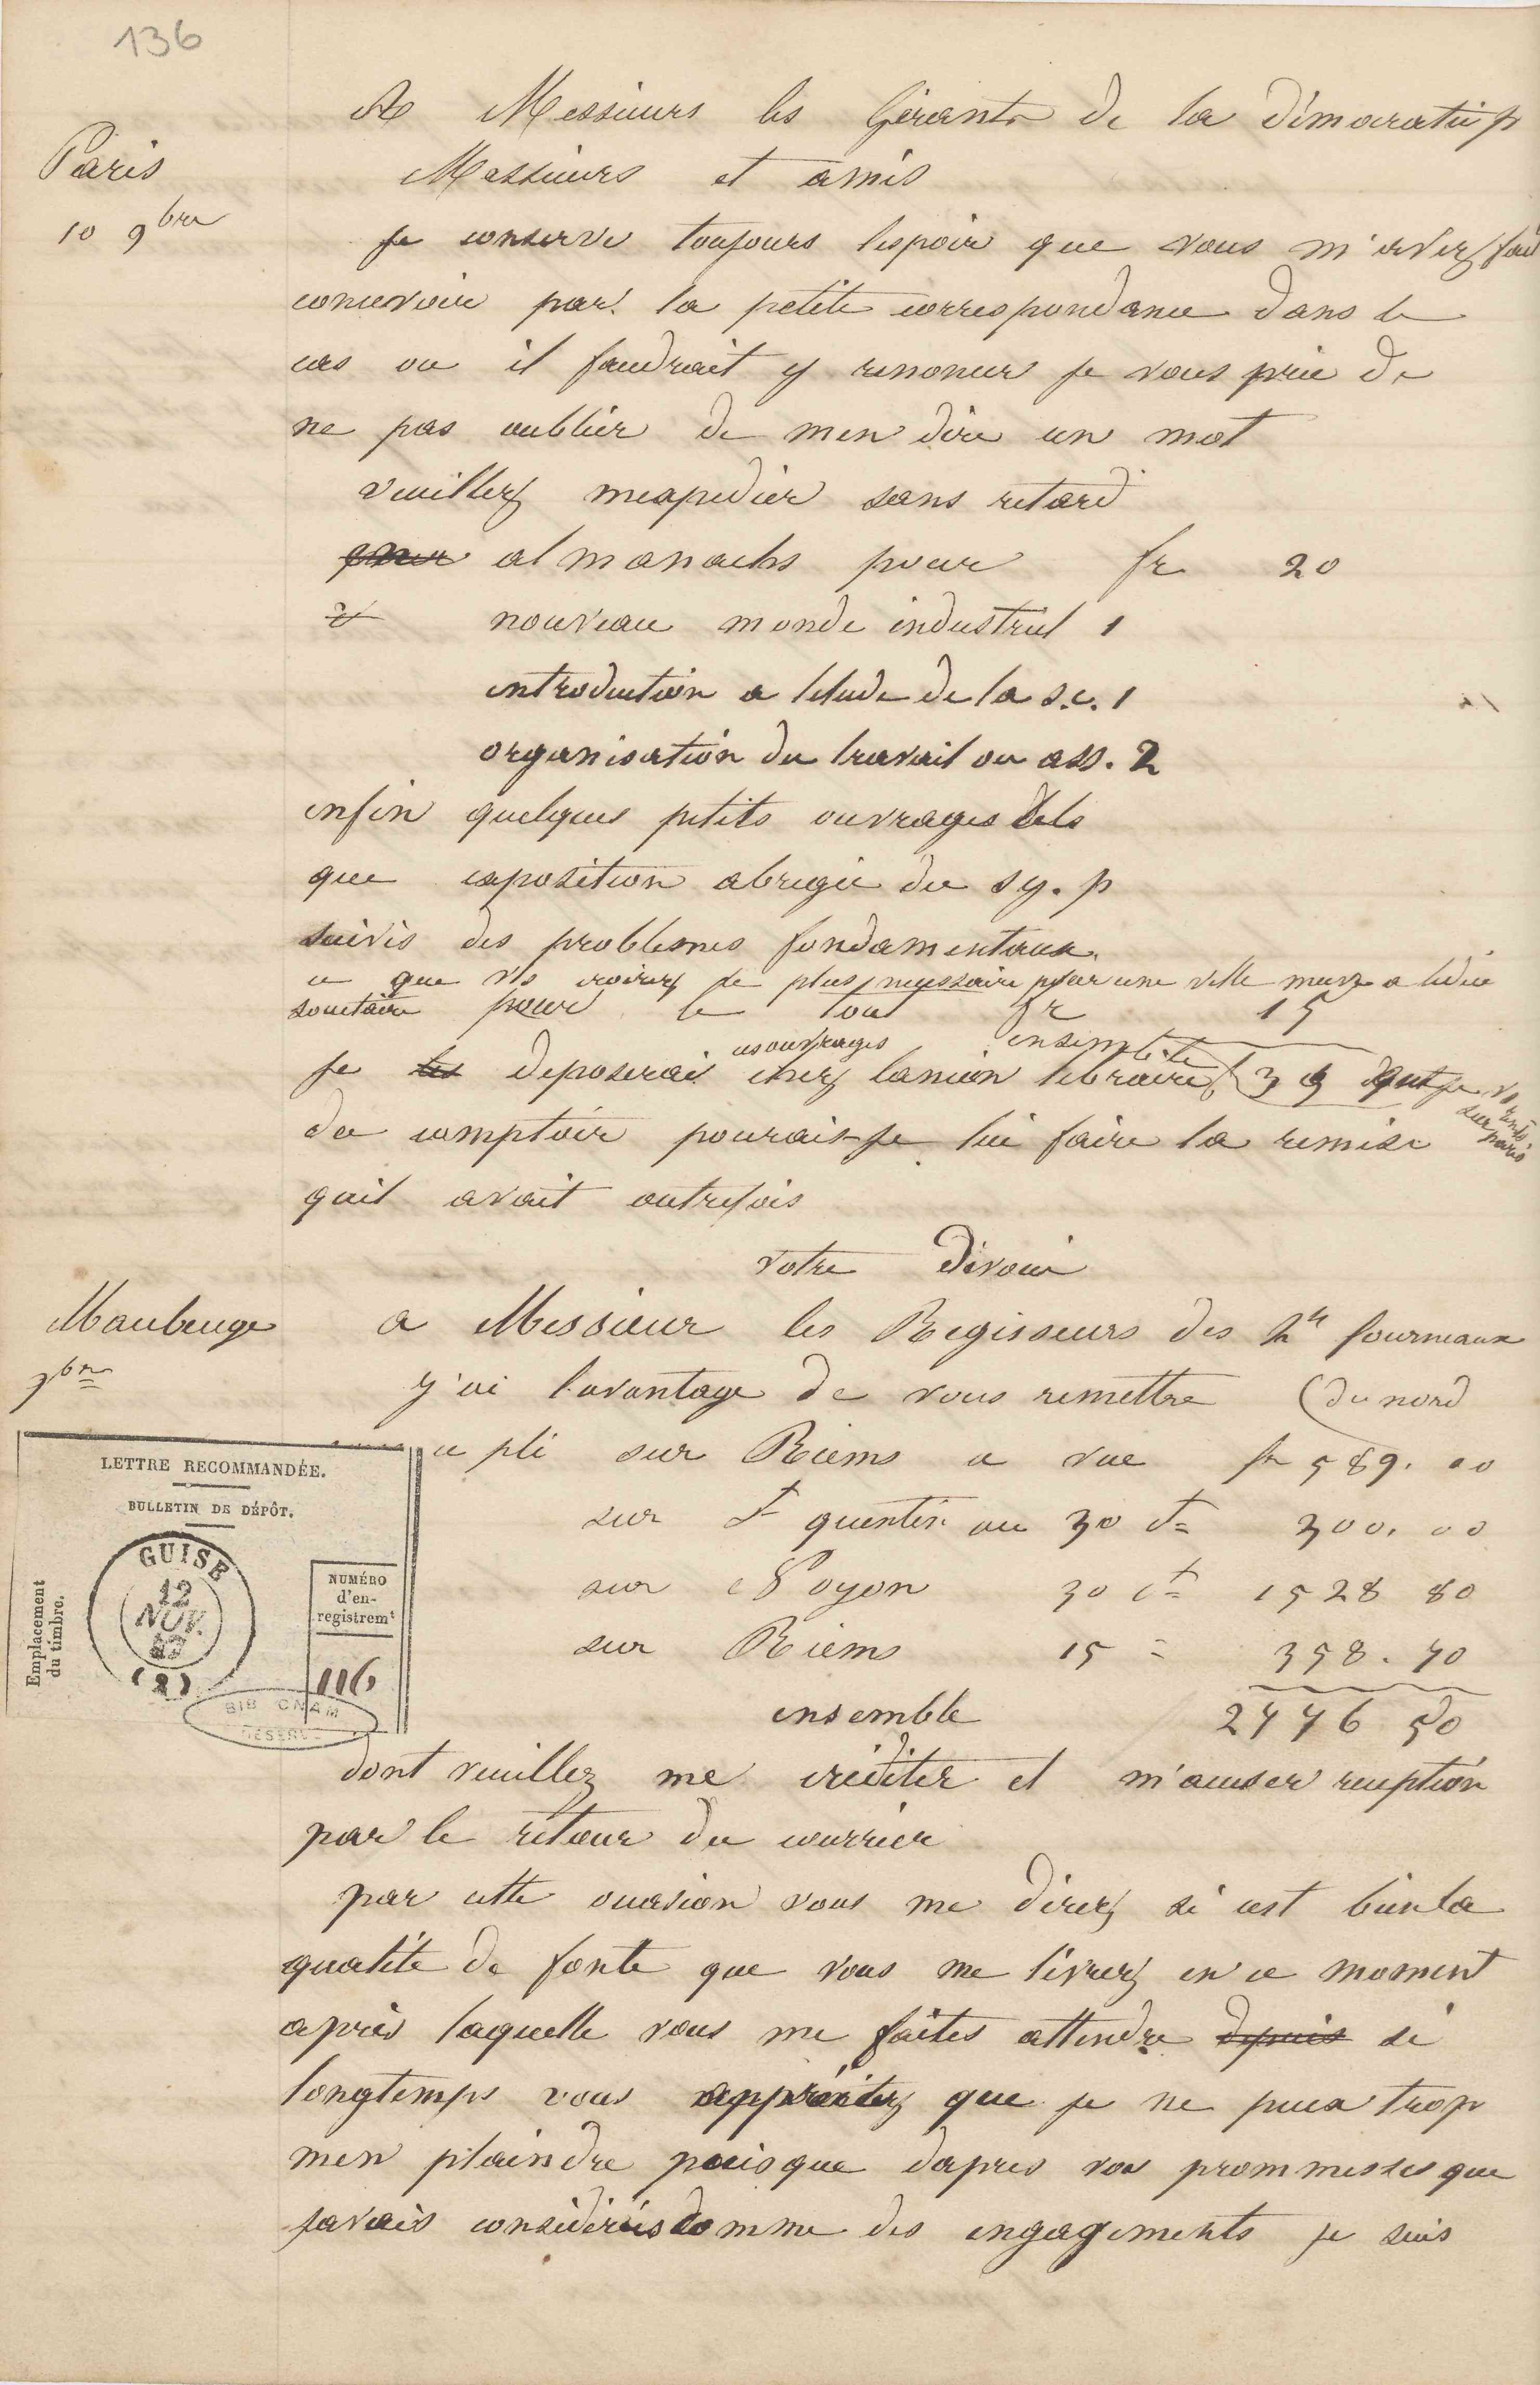 136
A Messieurs les Gérants de la démocratie p
Paris
Messieurs et amis
10 9bre
je conserve toujours lespoir que vous m'avez fait
concevoir par la petite correspondance dans le
cas ou il faudrait y renoncer je vous prie de
ne pas oublier de men dire un mot
veuillez mexpedier sans retard
almanachs pour fr 20
nouveau monde industriel 1
introduction a letude de la s.c. 1
organisation du travail ou ass. 2
enfin quelques petits ouvrages tels
que exposition abregée du sy. p
suivis des problemes fondamentaux
ce que vs croirez le plus necessaire pour une ville neuve a lidée
societaire pour le tout fr 15
ces ouvrages ensemble
je les deposerai chez lanion libraire
du comptoir pourais-je lui faire la remise
quil avait autrefois
votre dévoué
Maubeuge
a Messieur les Regisseurs des hts fourneaux
9bre
j'ai l'avantage de vous remettre (du nord
ce pli sur Riems a vue fr 589. 00
sur St quentin au 30 ct 300. 00
sur Noyon 30 ct 1528 80
sur Riems 15 = 358. 70
ensemble 2776 50
LETTRE RECOMMANDÉE.
BULLETIN DE DÉPÔT.
Emplacement
du timbre.
GUISE
12
NOV.
(2)
NUMÉRO
d'en-
registremt
116
BIB CNAM
RESERVE
dont veuillez me créditer et m'accuser reception
par le retour du courrier
par cette occasion vous me direz si cest bien la
qualité de fonte que vous me livrez en ce moment
apres laquelle vous me faites attendre depuis si
longtemps vous appréciez que je ne puex trop
men plaindre puisque dapres vos prommesses que
javais considérés comme des engagements je suis